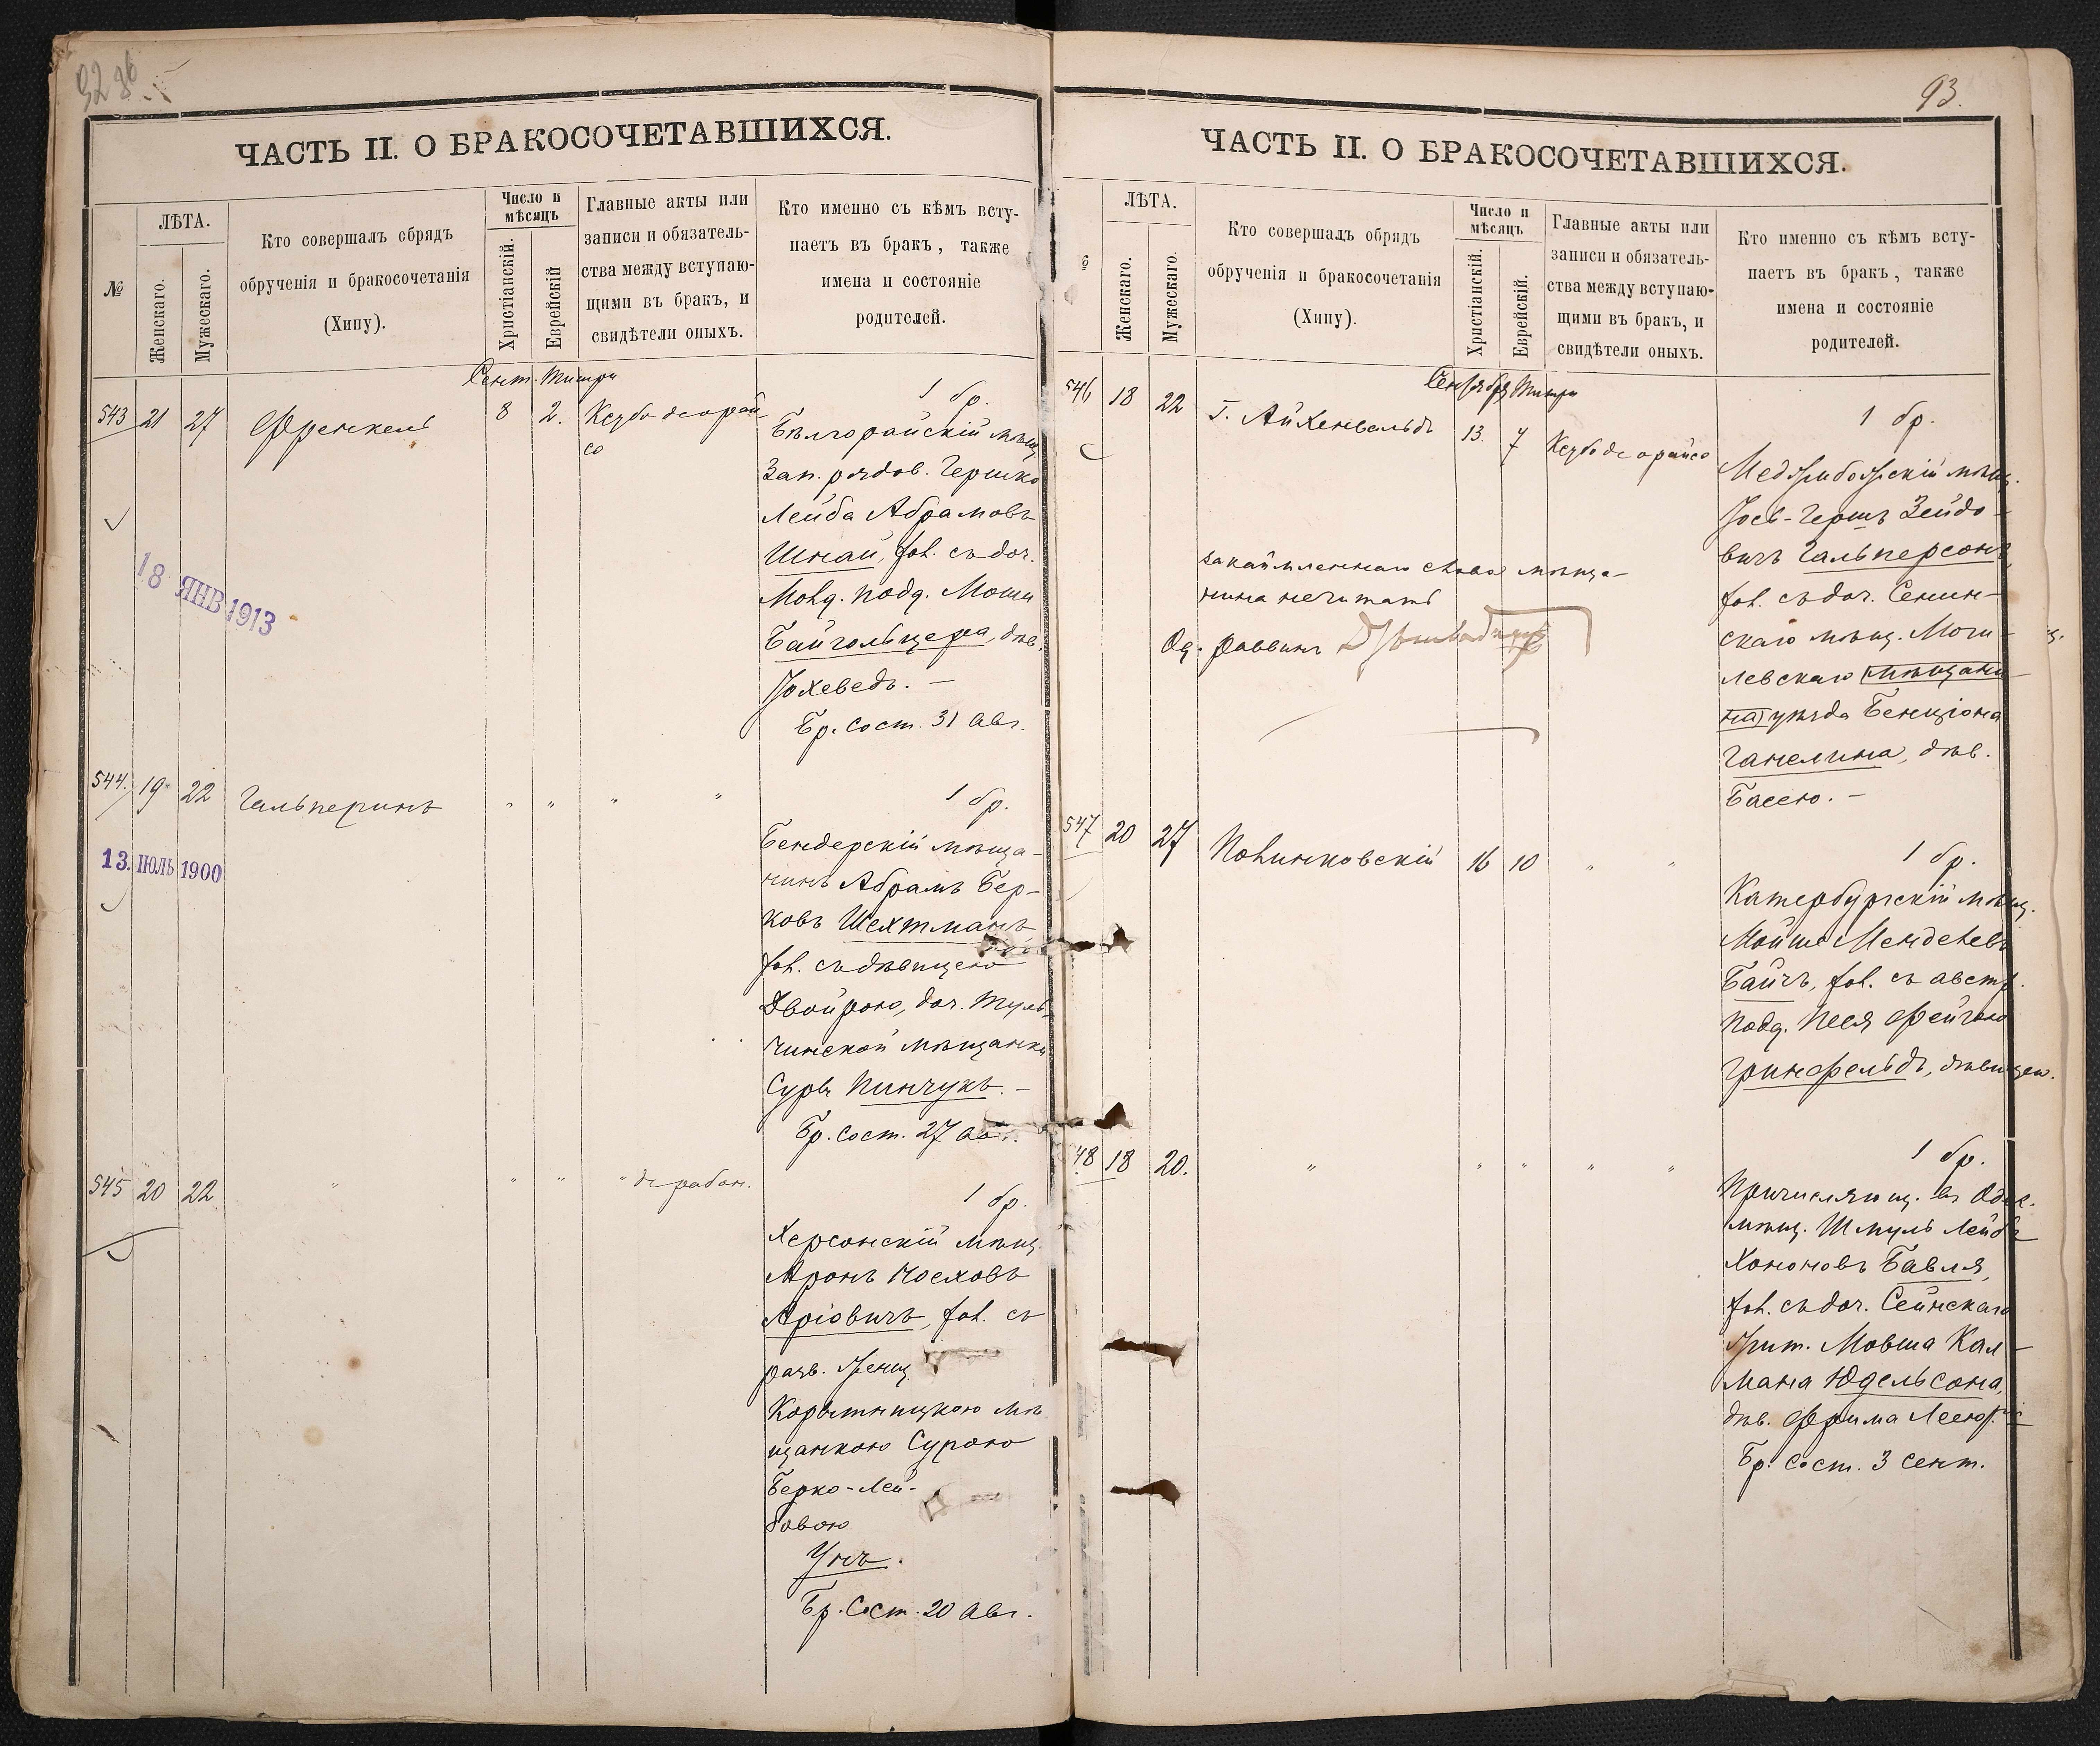 ЧАСТЬ II. О БРАКОСОЧЕТАВШИХСЯ.
№
ЛѢТА.
Женскаго.
Мужескаго.
Кто совершалъ обрядъ
обрученія и бракосочетанія
(Хипу).
Число и
мѣсяцъ
Христіанскій.
Еврейскій
Главные акты или
записи и обязатель-
ства между вступаю-
щими въ бракъ, и
свидѣтели оныхъ.
Кто именно съ кѣмъ всту-
паетъ въ бракъ, также
имена и состояніе
родителей.
Сент. Тишри
543 21 27 Френкель 8 2. Кезубо деорай
со
1 бр.
Бѣлгорайскій мѣщ.
Зап. рядов. Гершко
Лейба Абрамовъ
Шнай, хол. съ доч.
Молд. подд. Мошы
Байгольцера, дѣв.
Іохеведъ. —
Бр. сост. 31 Авг.
18 ЯНВ 1913
544. 19 22 Гальперинъ " " " "
1 бр.
Бендерскій мѣща-
нинъ Абрамъ Бер-
ковъ Шехтманъ
хол. съ дѣвицею
Двойрою, доч. Туль-
чинской мѣщанки
Суры Пинчукъ. —
Бр. сост. 27 Авг.
13. ІЮЛЬ 1900
545 20 22 " " " " дерабон.
1 бр.
Херсонскій мѣщ.
Аронъ Іосховъ
Аріовичъ, хол. съ
разв. женщ.
Корытницкою мѣ
щанкою Сурою
Берко-Лей-
бовою
Унъ.
Бр. Сост. 20 Авг.
93.
ЧАСТЬ II. О БРАКОСОЧЕТАВШИХСЯ.
ЛѢТА.
Женскаго.
Мужескаго.
Кто совершалъ обрядъ
обрученія и бракосочетанія
(Хипу).
Число и
мѣсяцъ
Христіанскій.
Еврейскій.
Главные акты или
записи и обязатель-
ства между вступаю-
щими въ бракъ, и
свидѣтели оныхъ.
Кто именно съ кѣмъ всту-
паетъ въ бракъ, также
имена и состояніе
родителей.
Сентября Тишри
546 18 22 Г. Айхенвальдъ 13. 7 Кезубо деорайсо
1 бр.
Меджибожскій мѣщ.
Іось-Гершъ Зейдо-
вичъ Гальперсонъ,
хол. съ доч. Сенин-
скаго мѣщ. Моги-
левскаго мѣщани-
на уѣзда Бенціона
Ганелина, дѣв.
Басею. —
закаймленнаго слова мѣща-
нина не читать
Од. раввинъ
547 20 27 Полинковскій 16 10 " "
1 бр.
Катербургскій мѣщ.
Мойше Менделевъ
Байчъ, хол. съ австр.
подд. Песя Фейгою
Гринфельдъ, дѣвицею.
48 18 20. " " " " "
1 бр.
Причисляющ. въ Одес.
мѣщ. Шмуль Лейбъ
Хононовъ Бавля,
хол. съ доч. Сейнскаго
жит. Мовша Кал-
мана Юдельсона,
дѣв. Фрима Леею.
Бр. Сост. 3 Сент.